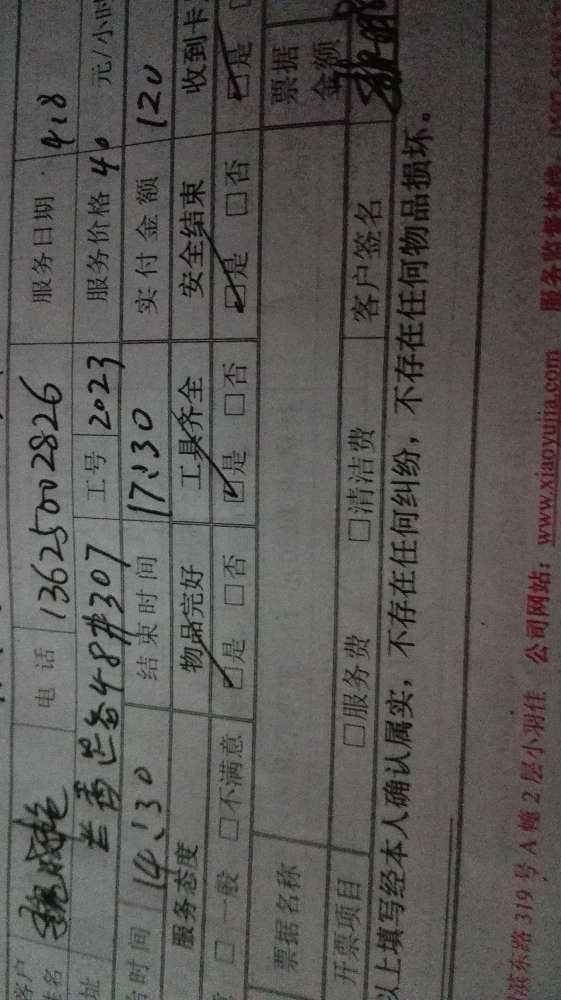 客户 电话 13625002826 服务日期 4.8
址 48#307 工号 2023 服务价格 40 元/小时
时间 14:30 结束时间 17:30 实付金额 120
服务态度 物品完好 工具齐全 安全结束 收到卡
□一般 □不满意 □是 □否 □是 □否 □是 □否 □是
票据名称 票据金额
开票项目 □服务费 □清洁费 客户签名
以上填写经本人确认属实，不存在任何纠纷，不存在任何物品损坏。
东路319号A幢2层小羽佳 公司网站：www.xiaoyujia.com 服务监督热线：